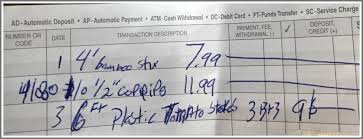 AD-Automatic Deposit • AP-Automatic Payment • ATM-Cash Withdrawal • DC-Debit Card • FT-Funds Transfer • SC-Service Charge
NUMBER OR CODE DATE TRANSACTION DESCRIPTION PAYMENT, FEE, WITHDRAWAL (-) ✓ DEPOSIT, CREDIT (+)
1 4' bamboo stx 7.99
10 1/2" 11.99
3 6 Ft Plastic Tomato stakes